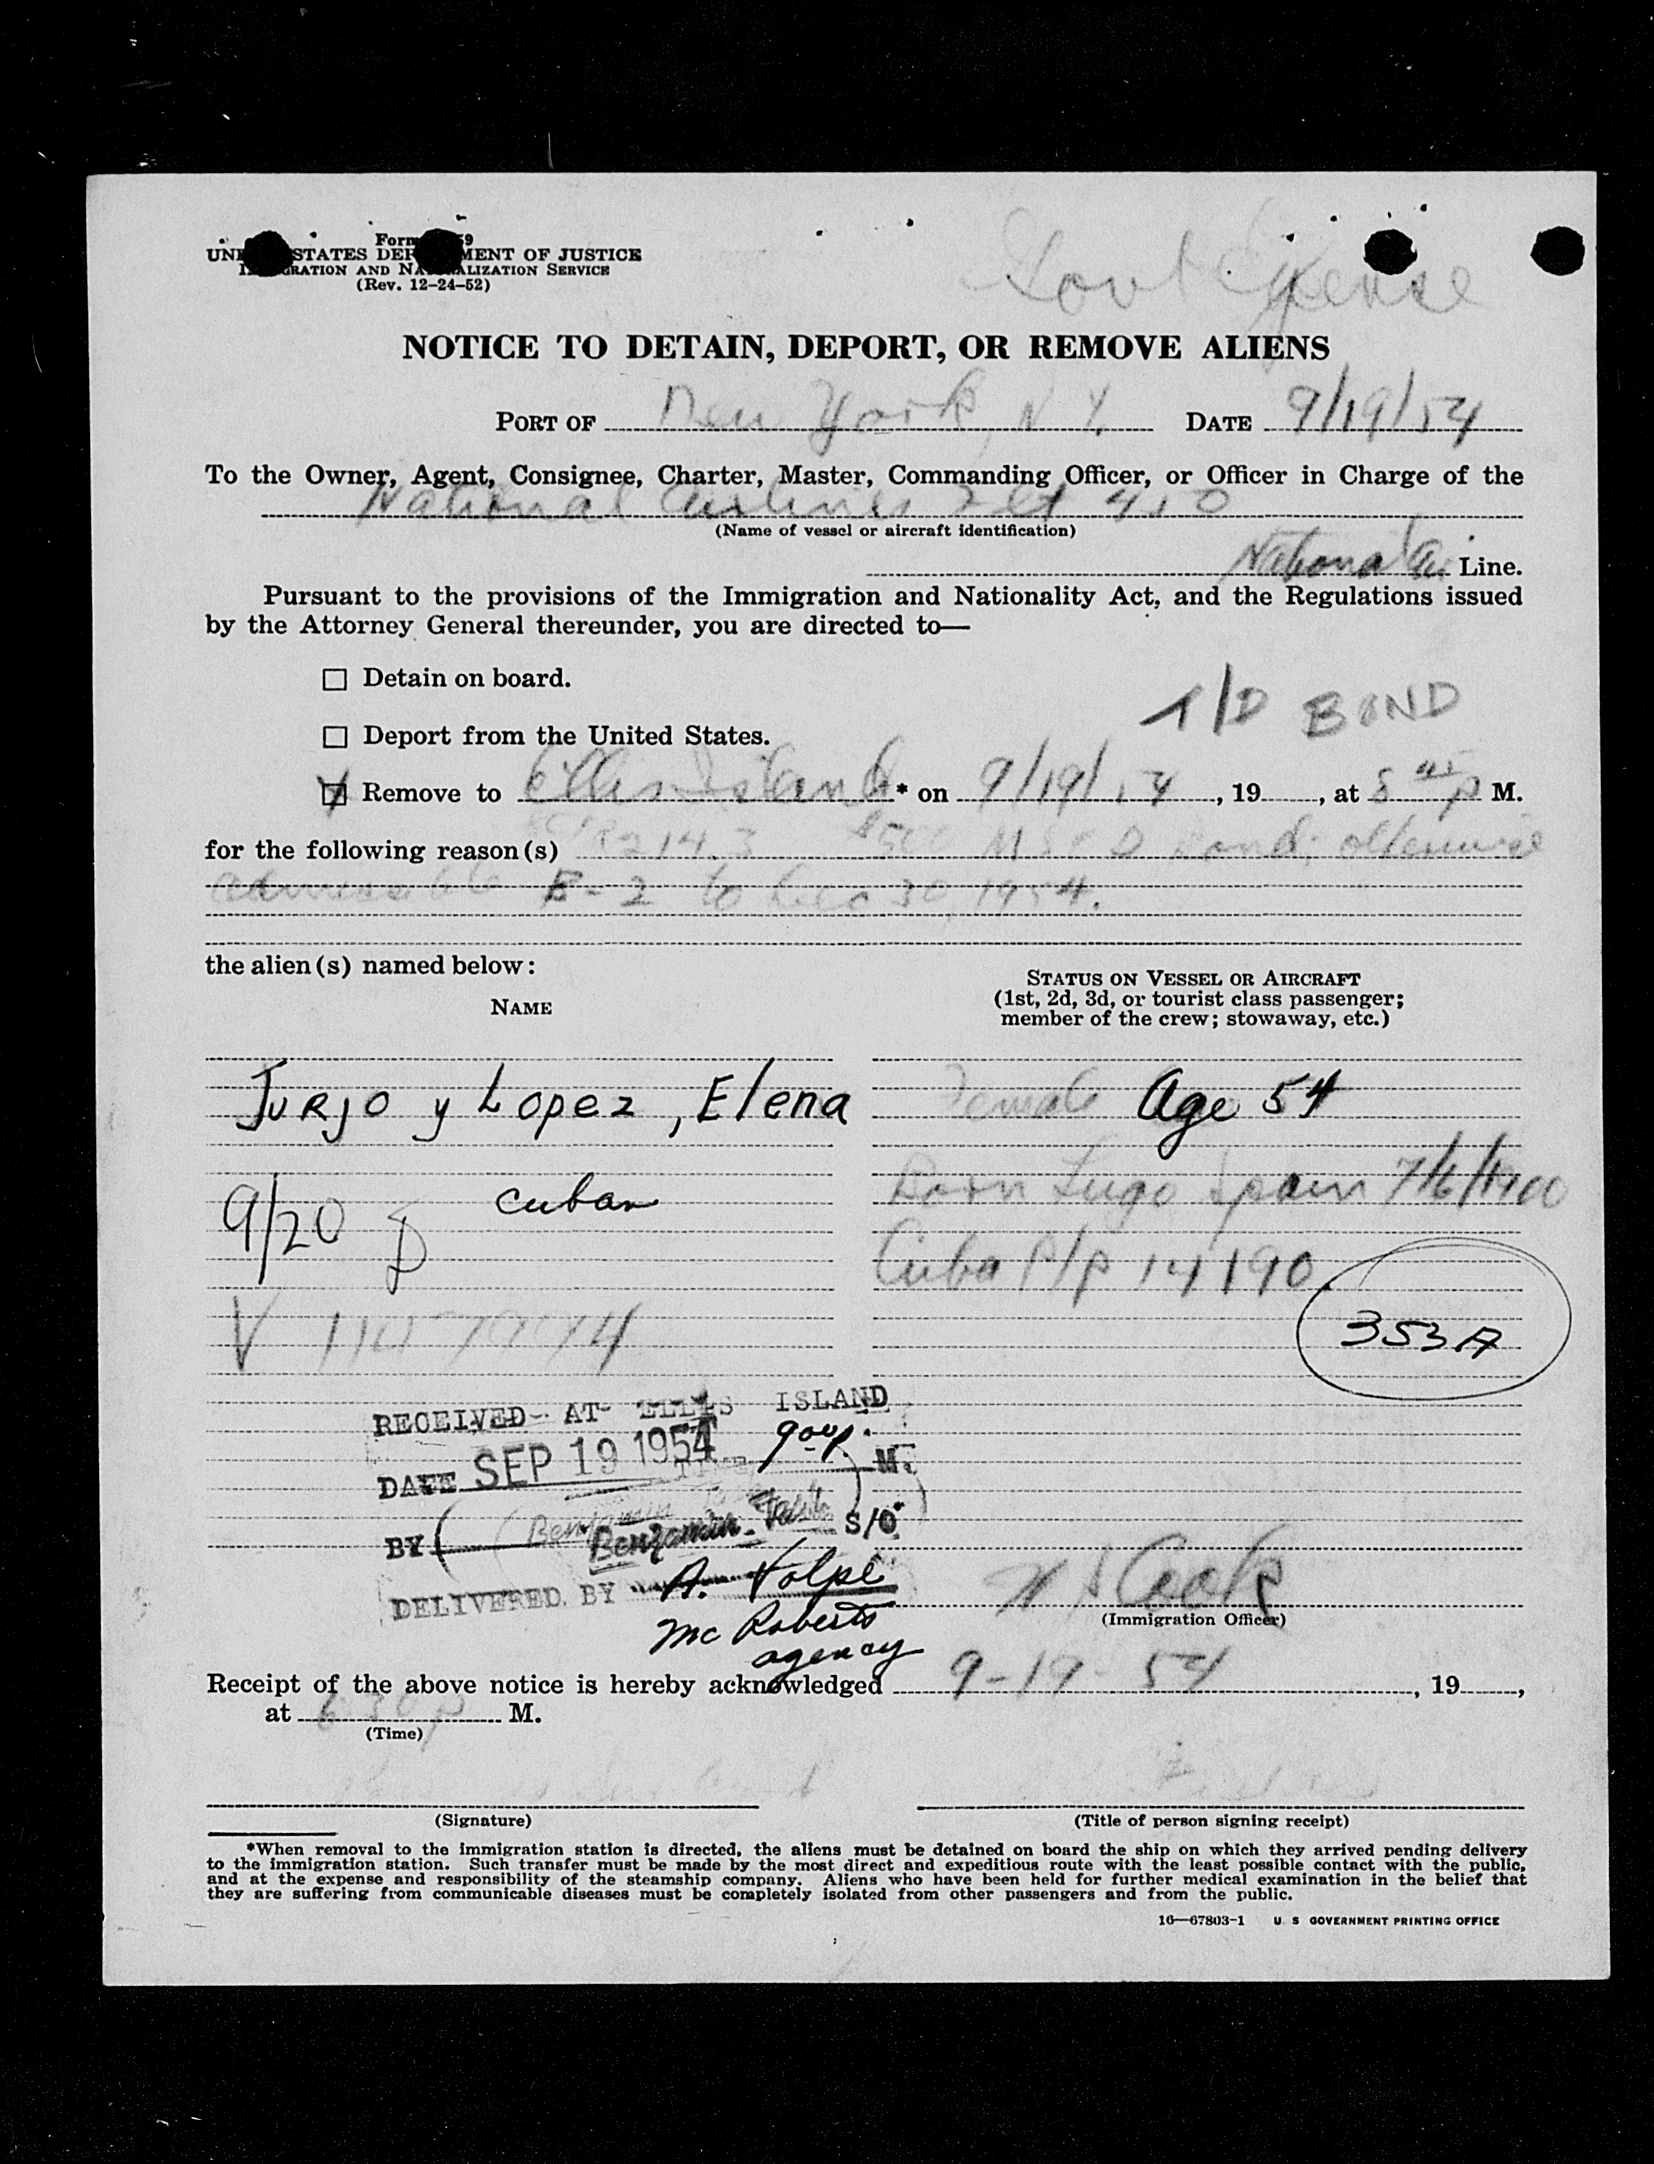 Form 59
UNI STATES DEP MENT OF JUSTICE
I RATION AND NA ALIZATION SERVICE
(Rev. 12-24-52)
Govt Expense
NOTICE TO DETAIN, DEPORT, OR REMOVE ALIENS
PORT OF New York, N.Y. DATE 9/19/54
To the Owner, Agent, Consignee, Charter, Master, Commanding Officer, or Officer in Charge of the
National Airlines Flt 410
(Name of vessel or aircraft identification)
National Air Line.
Pursuant to the provisions of the Immigration and Nationality Act, and the Regulations issued
by the Attorney General thereunder, you are directed to—
Detain on board.
T/D BOND
Deport from the United States.
Remove to Ellis Island * on 9/19/54, 19 , at 5 45 p M.
for the following reason(s) 214.3 $500 M S & D Bond; otherwise
admissible B-2 to Dec 30, 1954.
the alien(s) named below:
STATUS ON VESSEL OR AIRCRAFT
NAME
(1st, 2d, 3d, or tourist class passenger;
member of the crew; stowaway, etc.)
Jurjo y Lopez, Elena Female Age 54
Cuban Born Lugo Spain 7/6/1900
9/20
Cuba P/P 14190
V
353A
RECEIVED AT ELLIS ISLAND
DATE SEP 19 1954 TIME 900 p. M.
BY Benjamin S/O
DELIVERED BY A. Volpe
Mc Roberts
agency
Cook
(Immigration Officer)
Receipt of the above notice is hereby acknowledged 9-19-54, 19 ,
at 630 p M.
(Time)
(Signature) (Title of person signing receipt)
*When removal to the immigration station is directed, the aliens must be detained on board the ship on which they arrived pending delivery
to the immigration station. Such transfer must be made by the most direct and expeditious route with the least possible contact with the public,
and at the expense and responsibility of the steamship company. Aliens who have been held for further medical examination in the belief that
they are suffering from communicable diseases must be completely isolated from other passengers and from the public.
16—67803-1 U. S GOVERNMENT PRINTING OFFICE